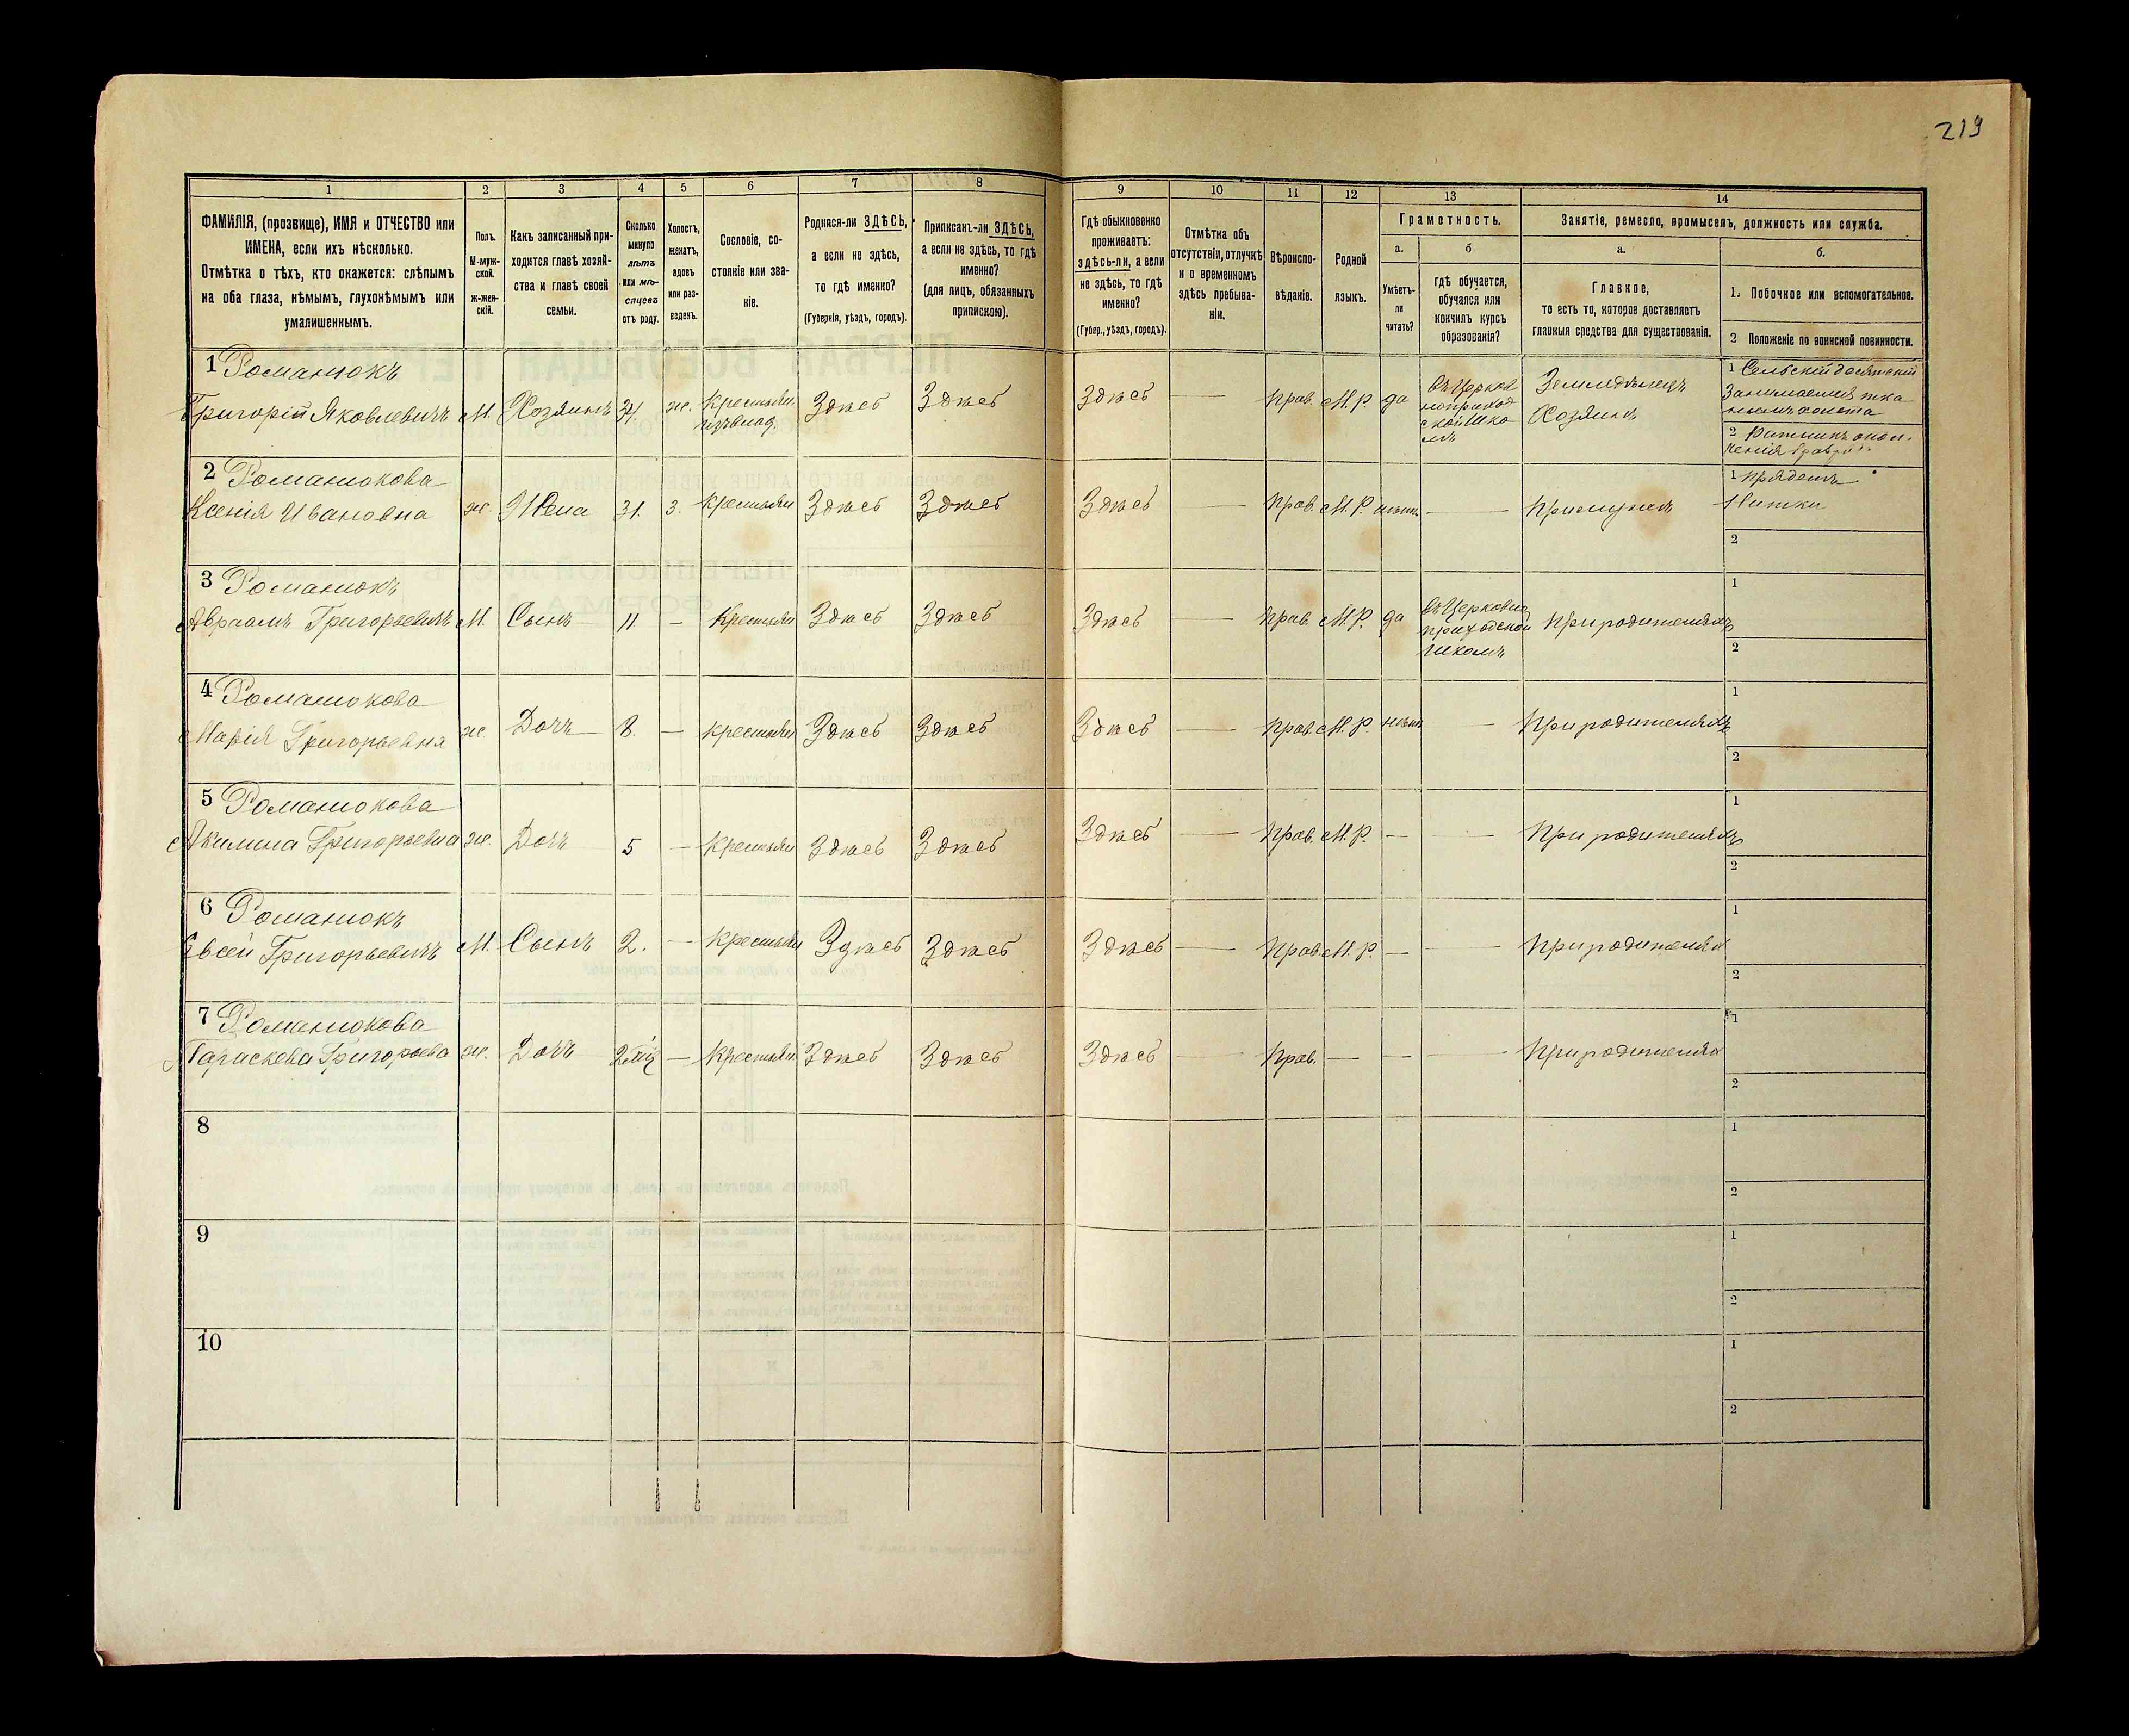 219
1 2 3 4 5 6 7 8 9 10 11 12 13 14
ФАМИЛІЯ, (прозвище), ИМЯ и ОТЧЕСТВО или
ИМЕНА, если ихъ нѣсколько.
Отмѣтка о тѣхъ, кто окажется: слѣпымъ
на оба глаза, нѣмымъ, глухонѣмымъ или
умалишеннымъ.
Полъ.
М-муж-
ской.
ж-жен-
скій.
Какъ записанный при-
ходится главѣ хозяй-
ства и главѣ своей
семьи.
Сколько
минуло
лѣтъ
или мѣ-
сяцевъ
отъ роду.
Холостъ,
женатъ,
вдовъ
или раз-
веденъ.
Сословіе, со-
стояніе или зва-
ніе.
Родился-ли ЗДѢСЬ,
а если не здѣсь,
то гдѣ именно?
(Губернія, уѣздъ, городъ).
Приписанъ-ли ЗДѢСЬ,
а если не здѣсь, то гдѣ
именно?
(для лицъ, обязанныхъ
припискою).
Гдѣ обыкновенно
проживаетъ:
здѣсь-ли, а если
не здѣсь, то гдѣ
именно?
(Губер., уѣздъ, городъ).
Отмѣтка объ
отсутствіи, отлучкѣ
и о временномъ
здѣсь пребыва-
ніи.
Вѣроиспо-
вѣданіе.
Родной
языкъ.
Грамотность.
а.
Умѣетъ-
ли
читать?
б
гдѣ обучается,
обучался или
кончилъ курсъ
образованія?
Занятіе, ремесло, промыселъ, должность или служба.
а.
Главное,
то есть то, которое доставляетъ
главныя средства для существованія.
б.
1. Побочное или вспомогательное.
2 Положеніе по воинской повинности.
1 Романюкъ
Григорій Яковлевичъ М. Хозяинъ ж. Крестьян. Здѣсь Здѣсь Здѣсь — Прав. М.Р. да
въ Церков
ноприход
ской Шко
лѣ
Земледѣлецъ
Хозяинъ
1 Сельскій десятскій
Занимается тка
ніемъ холста
2 Ратникъ опол.
ченія
2 Романюкова
Ксенія Ивановна ж. Жена 31. З. Крестьян Здѣсь Здѣсь Здѣсь — Прав. М.Р. нѣтъ — При мужѣ
1 Прядетъ
Нитки
2
3 Романюкъ
Авраамъ Григорьевичъ М. Сынъ 11. — Крестьян Здѣсь Здѣсь Здѣсь — Прав. М.Р. да
въ Церковно
приходской
школѣ
При родителяхъ
1
2
4 Романюкова
Марія Григорьевна ж. Дочь 8. — Крестьян Здѣсь Здѣсь Здѣсь — Прав. М.Р. нѣтъ — При родителяхъ
1
2
5 Романюкова
Акилина Григорьевна ж. Дочь 5 — Крестьян Здѣсь Здѣсь Здѣсь — Прав. М.Р. — — При родителяхъ
1
2
6 Романюкъ
Евсей Григорьевичъ М. Сынъ 2. — Крестьян Здѣсь Здѣсь Здѣсь — Прав. М.Р. — — При родителях
1
2
7 Романюкова
Параскева Григорьева ж. Дочь — Крестьян Здѣсь Здѣсь Здѣсь — Прав. — — — При родителях
1
2
8
1
2
9
1
2
10
1
2